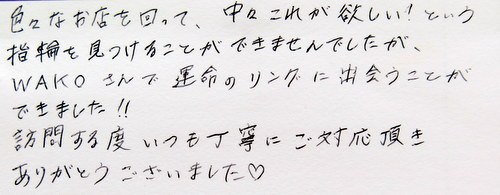 色々なお店を回って、中々これが欲しい!という
指輪を見つけることができませんでしたが、
WAKOさんで運命のリングに出会うことが
できました!!
訪問する度いつも丁寧にご対応頂き
ありがとうございました♡